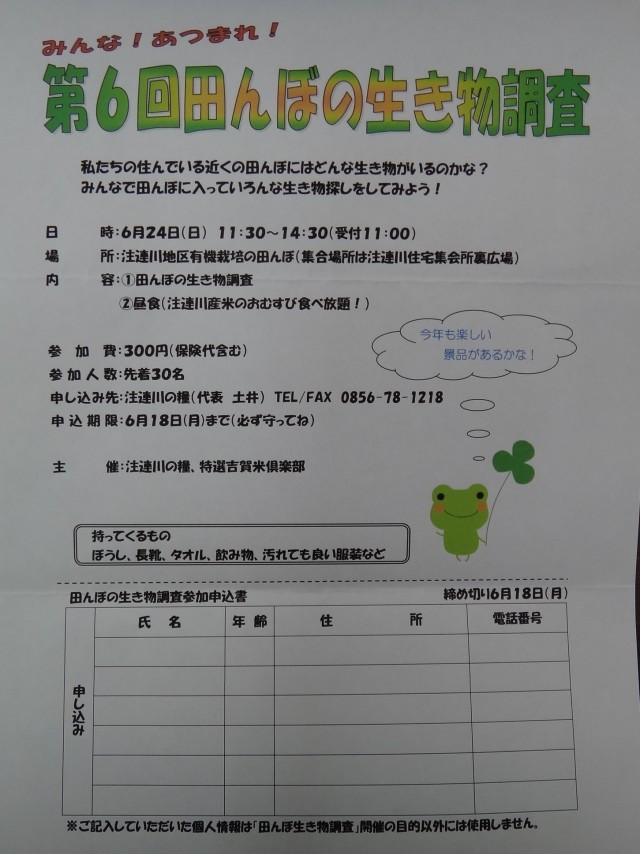 みんな！あつまれ！
第6回田んぼの生き物調査
私たちの住んでいる近くの田んぼにはどんな生き物がいるのかな？
みんなで田んぼに入っていろんな生き物探しをしてみよう！
日　　　時：6月24日（日） 11:30～14:30（受付11:00）
場　　　所：注連川地区有機栽培の田んぼ（集合場所は注連川住宅集会所裏広場）
内　　　容：①田んぼの生き物調査
②昼食（注連川産米のおむすび食べ放題！）
今年も楽しい
景品があるかな！
参 加 費：300円（保険代含む）
参加人数：先着30名
申し込み先：注連川の糧（代表 土井） TEL/FAX 0856-78-1218
申込期限：6月18日（月）まで（必ず守ってね）
主　　　催：注連川の糧、特選吉賀米倶楽部
持ってくるもの
ぼうし、長靴、タオル、飲み物、汚れても良い服装など
田んぼの生き物調査参加申込書　締め切り6月18日（月）
氏 名　年 齢　住 所　電話番号
申し込み
※ご記入していただいた個人情報は「田んぼ生き物調査」開催の目的以外には使用しません。